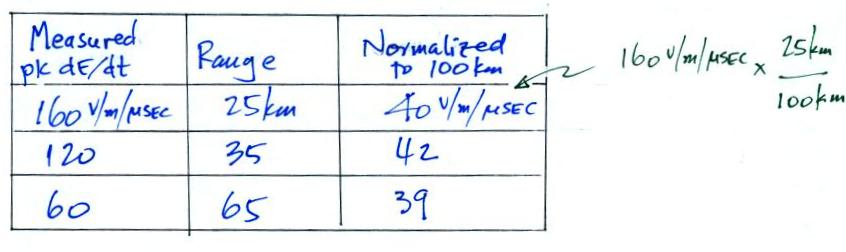 Measured pk dE/dt Range Normalized to 100km
160 V/m/μSEC 25km 40 V/m/μSEC
120 35 42
60 65 39
160 V/m/μSEC x 25km / 100km